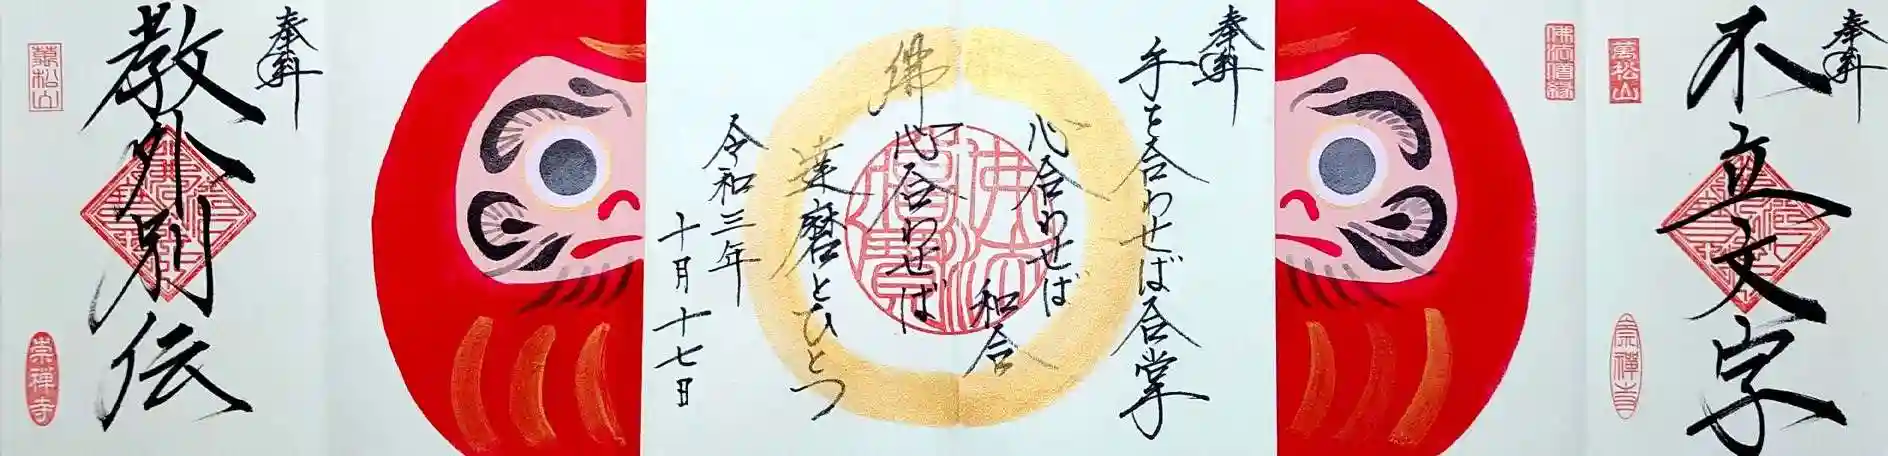 奉拝
不立文字
萬松山
崇禅寺
奉拝
手を合わせば合掌
心合わせば
和合
佛心合わせば
達磨とひとつ
令和三年
十月十七日
佛法僧寶
奉拝
教外別伝
萬松山
崇禅寺